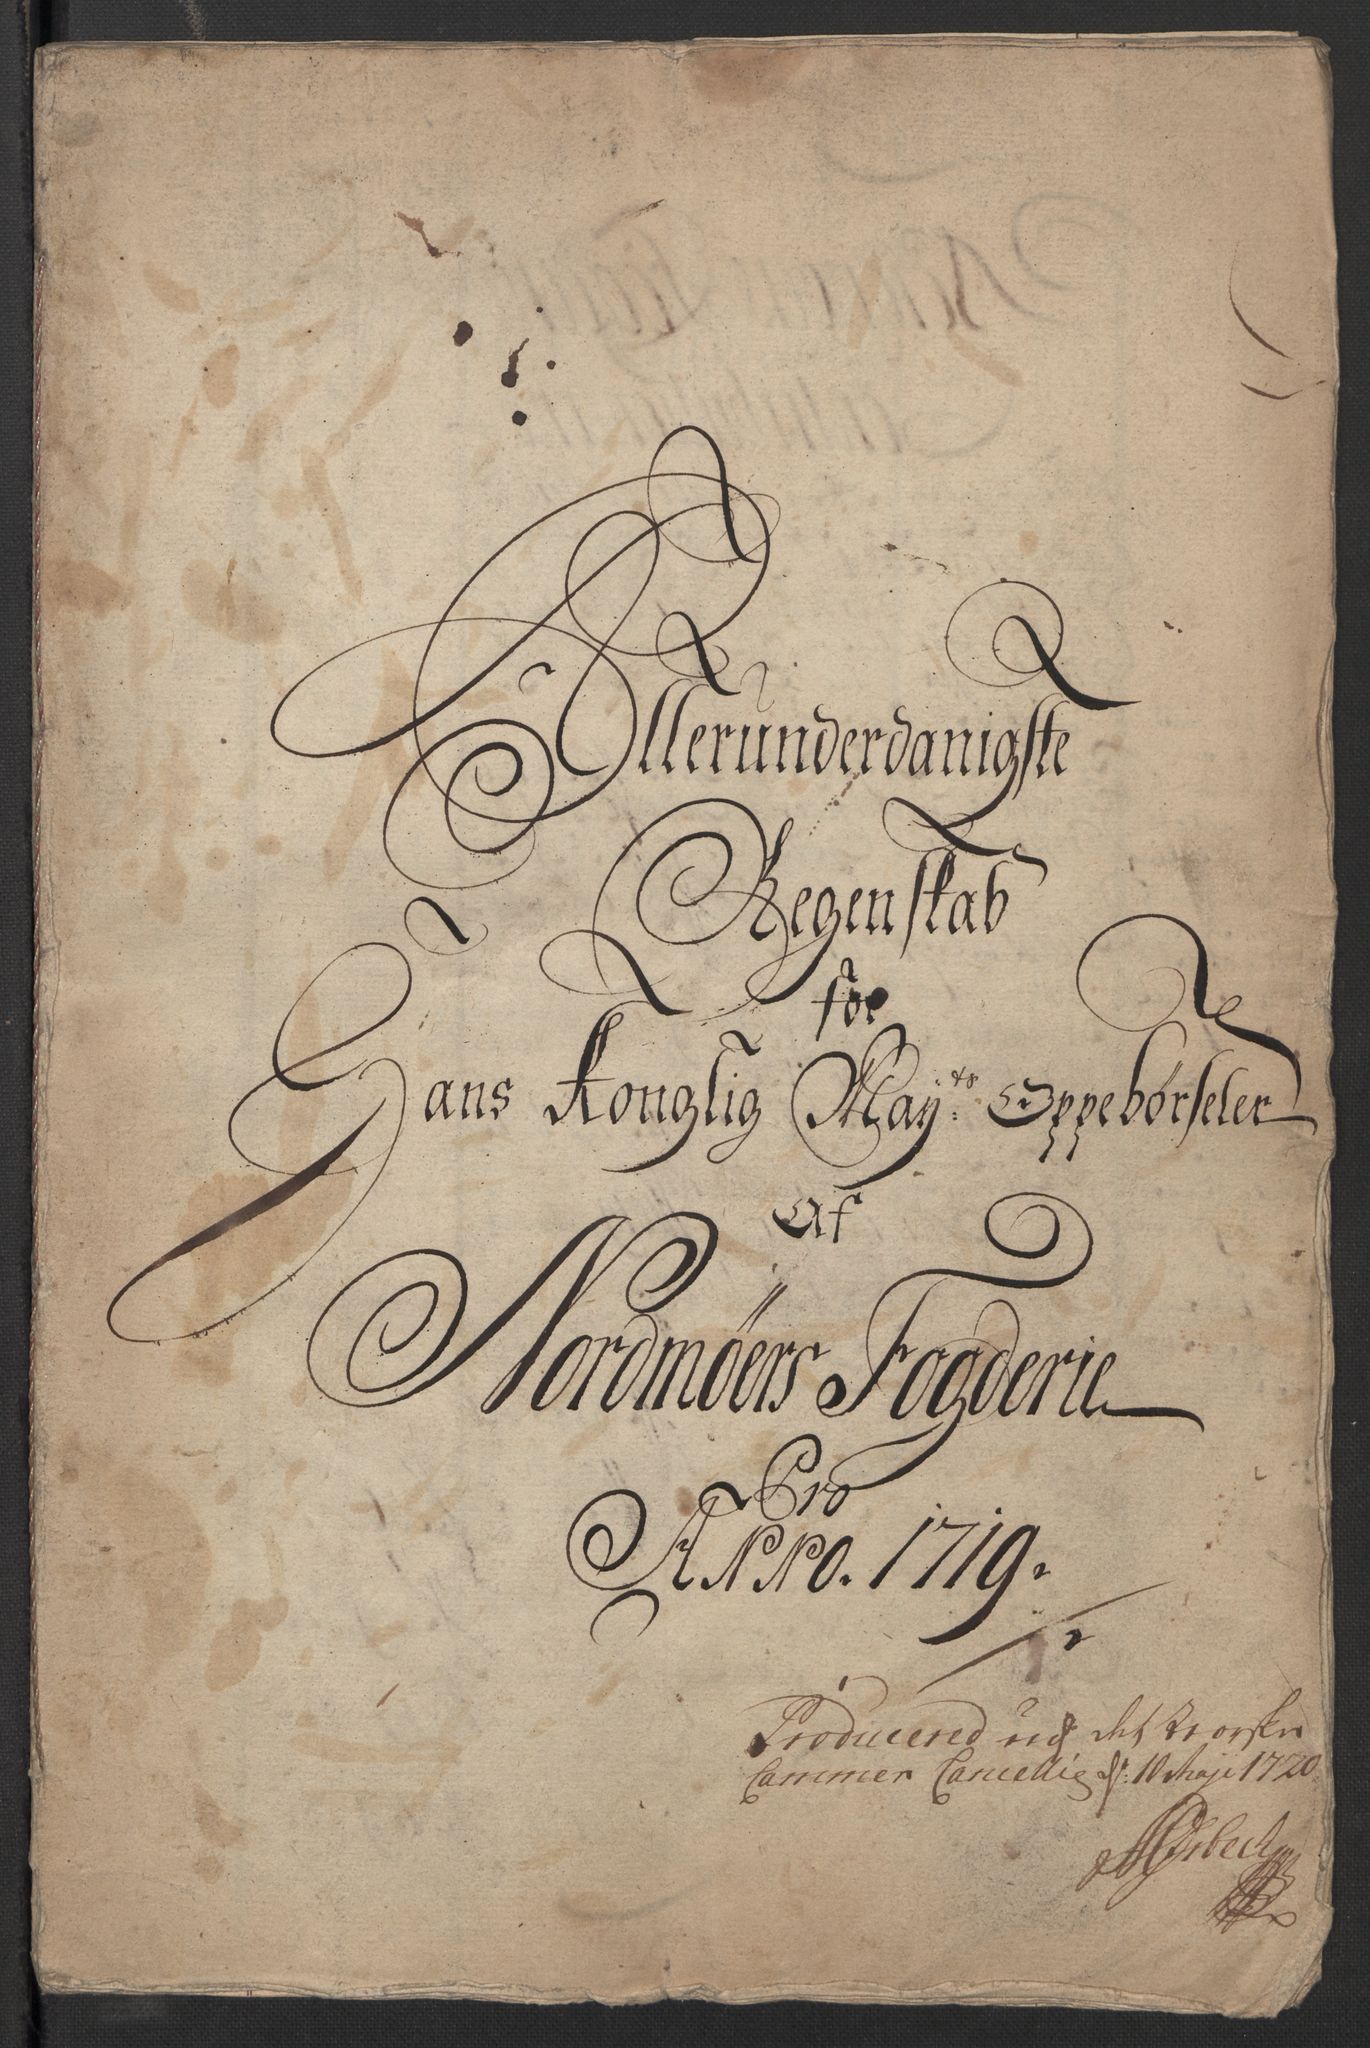 Allerunderdanigste
Regenskab
for
Hans Konglig May:ts Oppebørseler
Af
Nordmøers Fogderie
Pro
ANNO. 1719.
Producered ud det Norske
Cammer Cancellie d: 10 Maji 1720